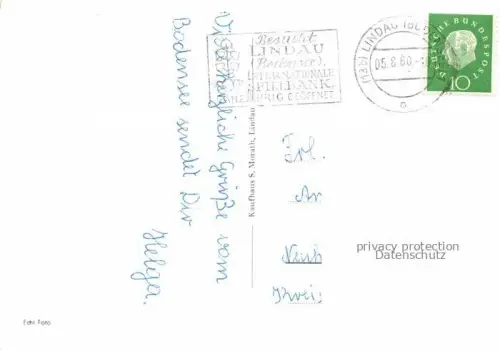 Viele herzliche Grüße vom
Bodensee sendet Dir
Helga.
Kaufhaus S. Morath, Lindau
Echt Foto
Besucht
LINDAU
(Bodensee),
INTERNATIONALE
SPIELBANK
GANZJÄHRIG GEÖFFNET
(13b) LINDAU (BO
05.8.60
a
DEUTSCHE BUNDESPOST
10
Frl.
privacy protection
Datenschutz